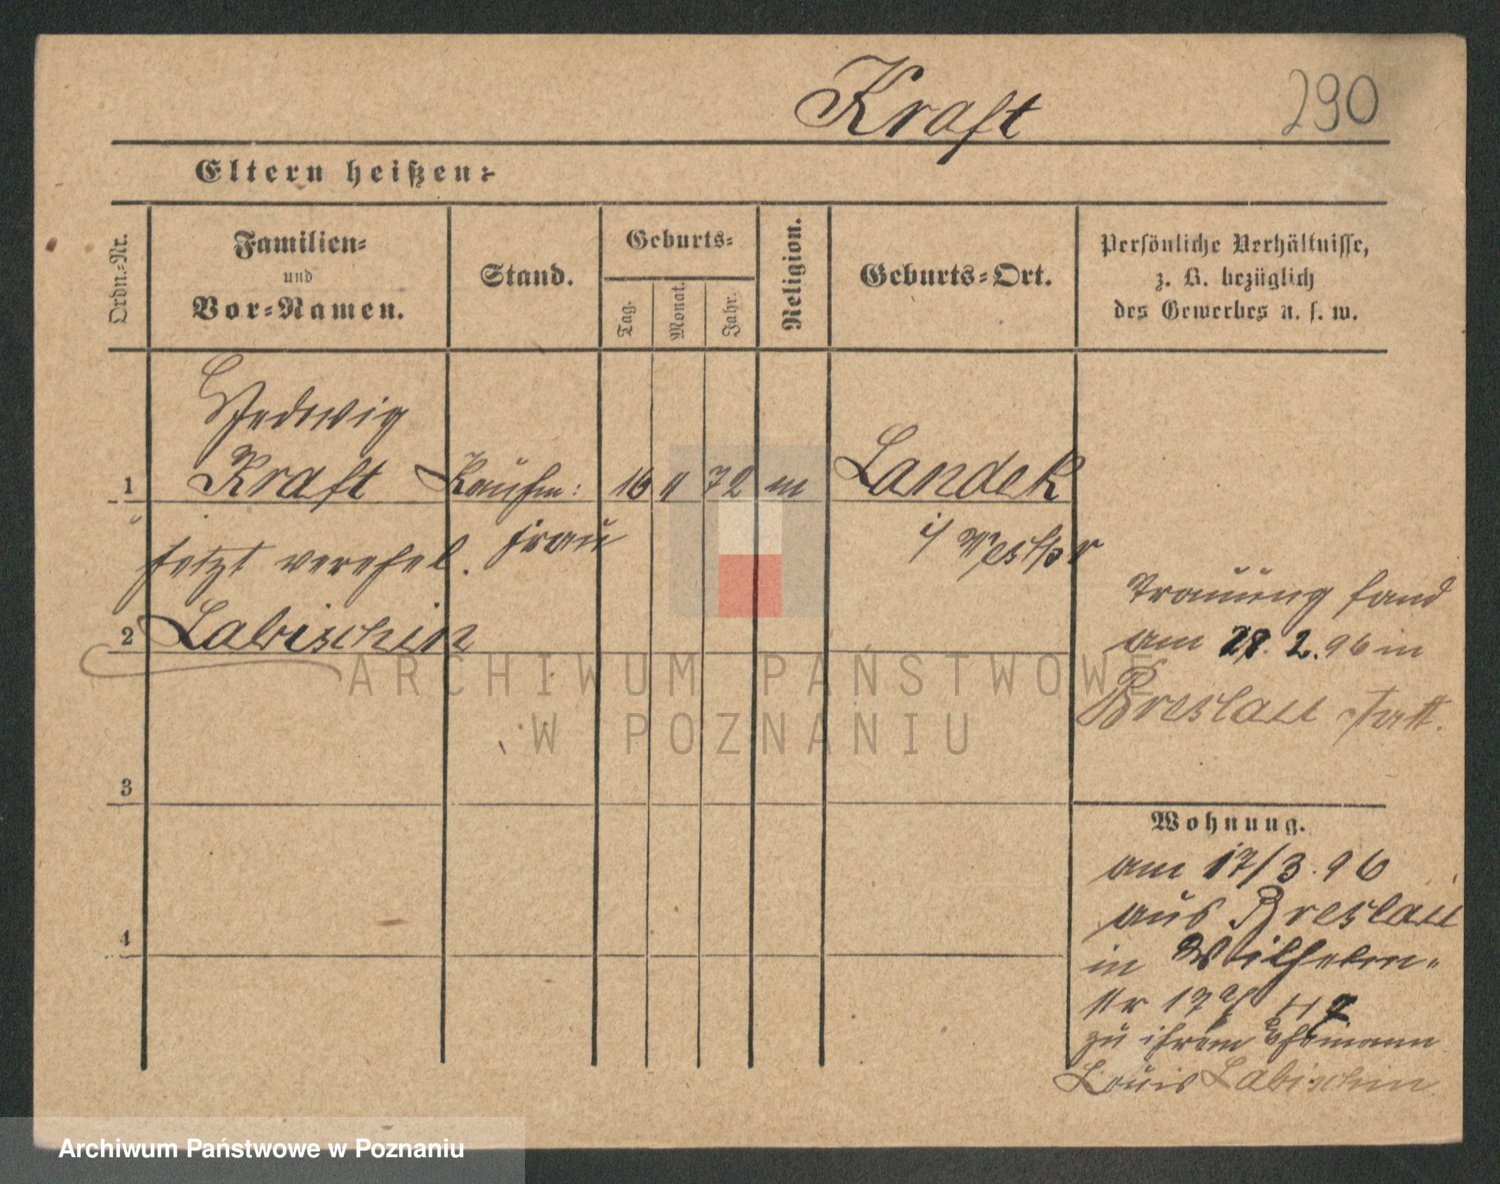 Kraft 290
Eltern heißen:
Ordn.-Nr.
Familien-
und
Vor-Namen.
Stand.
Geburts-
Tag.
Monat.
Jahr.
Religion.
Geburts-Ort.
Persönliche Verhältnisse,
z. B. bezüglich
des Gewerbes u. s. w.
Hedwig
1 Kraft Kaufm: 16 11 72 m Landek
frau i/ Westpr
jetzt verehel.
2 Labischin
Trauung fand
am 28. 2. 96 in
Breslau statt.
3
4
Wohnung.
am 17/3. 96
aus Breslau
in Wilhelm-
str 17
zu ihrem Ehemann
Louis Labischin
ARCHIWUM PAŃSTWOWE
W POZNANIU
Archiwum Państwowe w Poznaniu